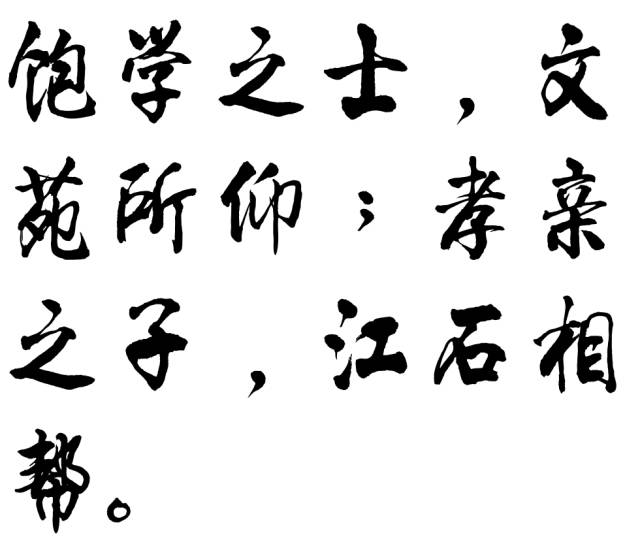 饱学之士，文
苑所仰；孝亲
之子，江石相
帮。